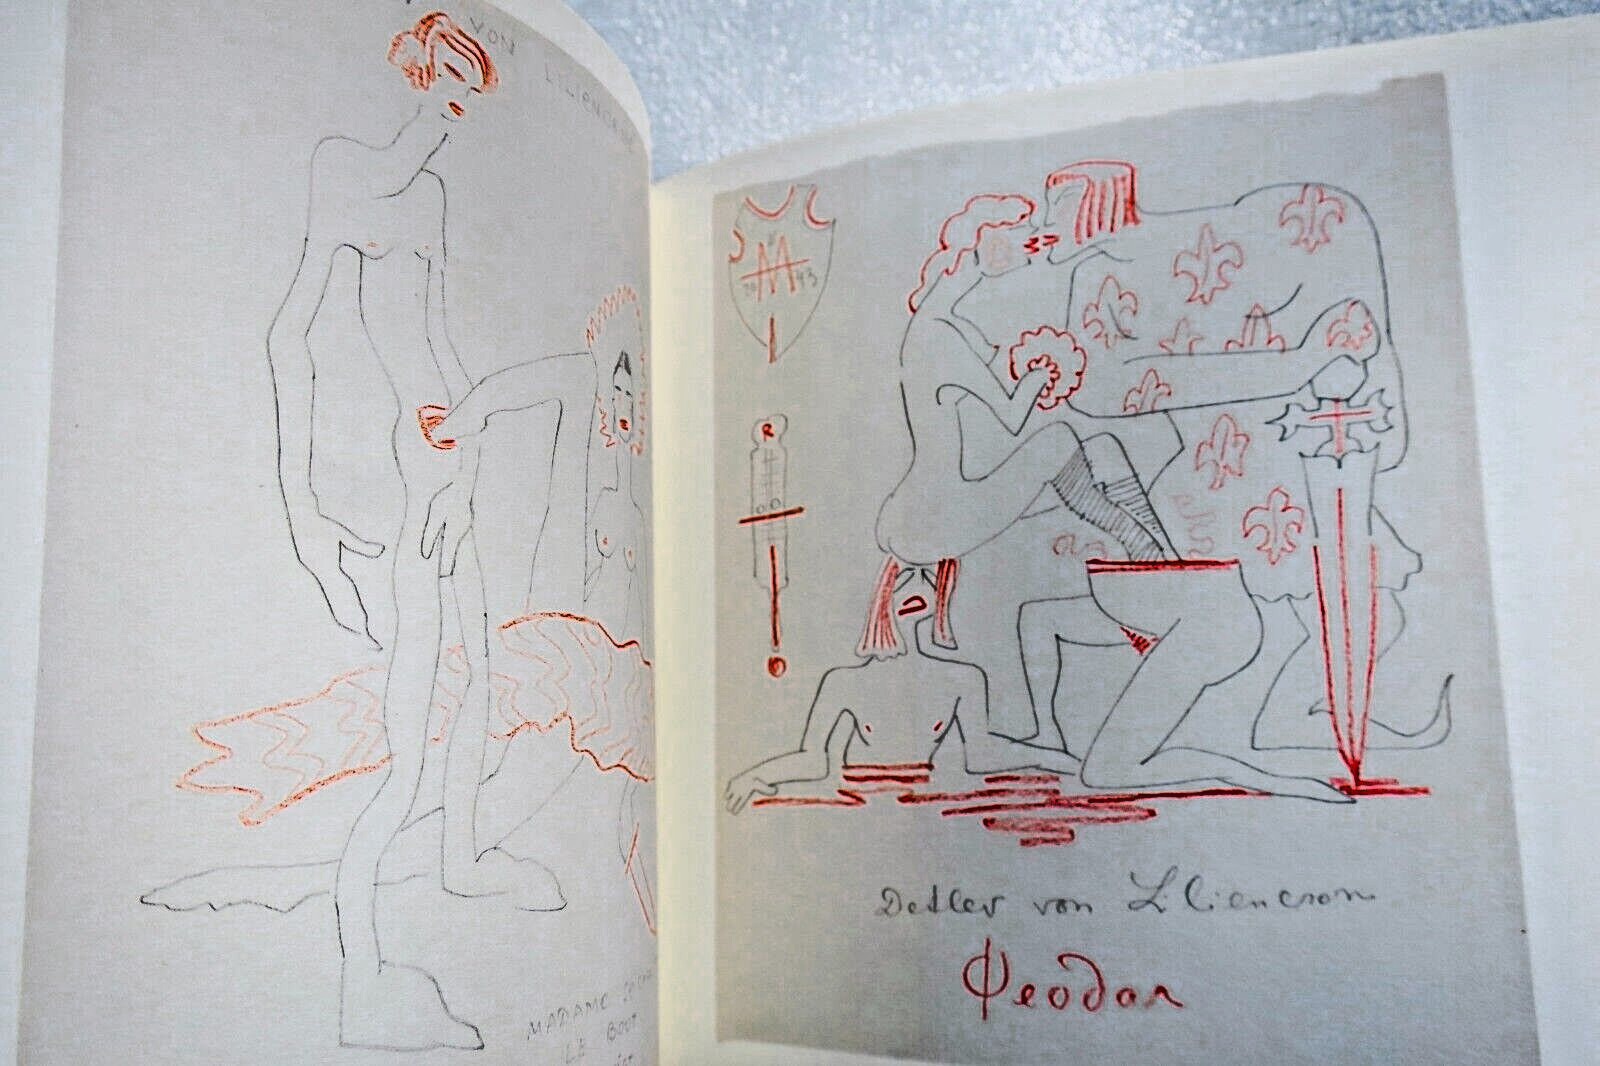 VON
LILIENCRON
MADAME
LE BOOT
M
20 43
R
Detlev von Liliencron
Ѱеодоr